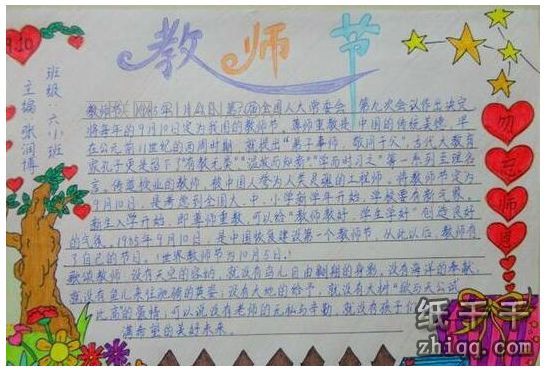 9.10
教师节
班级:六小班
主编 张润博
勿忘师恩
教师节 1985年1月21日第六届全国人大常委会 第九次会议作出决定
将每年的9月10日定为我国的教师节。尊师重教是中国的传统美德,早
在公元前11世纪的西周时期,就提出“弟子事师,敬同于父”,古代大教育
家孔子更是留下了“有教无类”“温故而知新”“学而时习之”等一系列至理名
言。传道授业的教师,被中国人誉为人类灵魂的工程师,将教师节定为
9月10日,是考虑到全国大、中、小学新学年开始,学校要有新气象。
新生入学开始,即尊师重教,可以给“教师教好,学生学好”创造良好
的气氛。1985年9月10日,是中国恢复建设第一个教师节,从此以后,教师有
了自己的节日。(世界教师节为10月5日。)
歌颂教师 没有天空的容纳,就没有鸟儿自由翱翔的身影,没有海洋的奉献,
就没有鱼儿来往驰骋的英姿,没有大地的给予,就没有大树
比高的豪情,可以说没有老师的无私与辛勤,就没有孩子们
满希望的美好未来。
纸芊芊
zhiqq.com